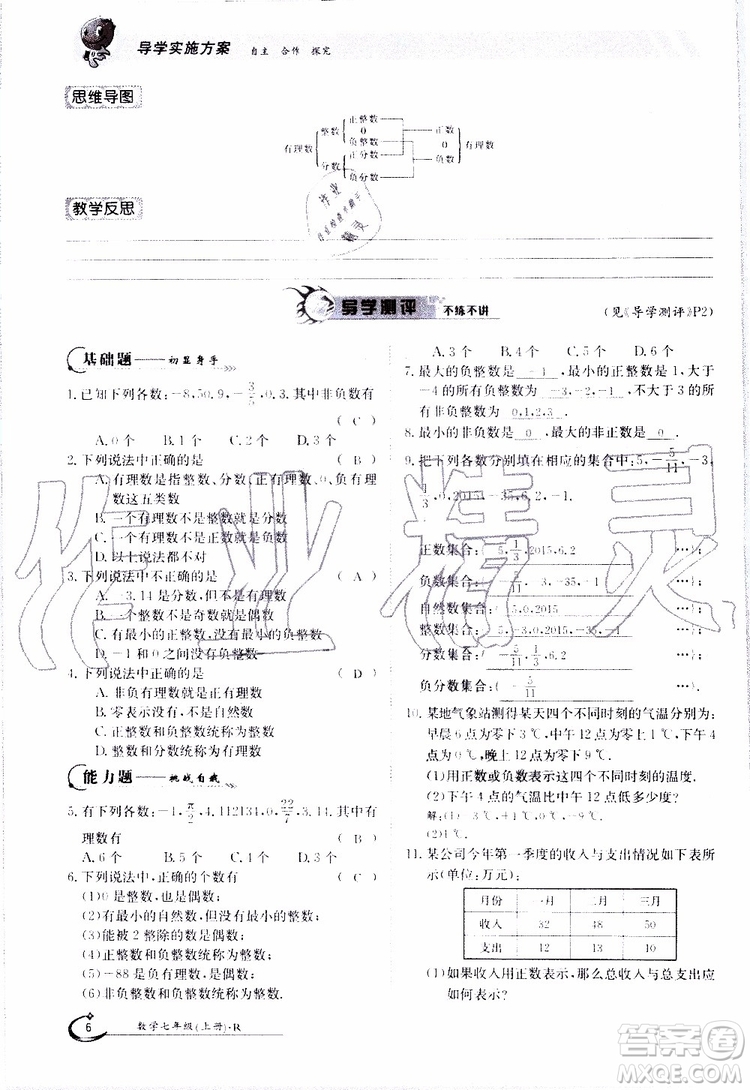 导学实施方案 自主 合作 探究
思维导图
有理数 整数 正整数 0 负整数 分数 正分数 负分数 正数 0 负数 有理数
教学反思
导学测评 不练不讲 (见《导学测评》P2)
基础题——初显身手
1.已知下列各数:-8,50,9,-3/5,0,3.其中非负数有
( C )
A.0个 B.1个 C.2个 D.3个
2.下列说法中正确的是 ( B )
A.有理数是指整数、分数、正有理数、0、负有理数这五类数
B.一个有理数不是整数就是分数
C.一个有理数不是正数就是负数
D.以上说法都不对
3.下列说法中不正确的是 ( A )
A.-3.14是分数,但不是负数
B.一个整数不是奇数就是偶数
C.有最小的正整数,没有最小的整数
D.-1和0之间没有负整数
4.下列说法中正确的是 ( D )
A.非负有理数就是正有理数
B.零表示没有,不是自然数
C.正整数和负整数统称为整数
D.整数和分数统称为有理数
能力题——挑战自我
5.有下列各数:-1,π/2,4.112134,0,22/7,3.14,其中有理数有 ( B )
A.6个 B.5个 C.4个 D.3个
6.下列说法中,正确的个数有 ( C )
(1)0是整数,也是偶数;
(2)有最小的自然数,但没有最小的整数;
(3)能被2整除的数是偶数;
(4)正整数和负整数统称为整数;
(5)-88是负有理数;
(6)非负整数和负分数统称为有理数.
A.3个 B.2个 C.4个 D.6个
7.最大的负整数是 -1 ,最小的正整数是 1 ,大于-4的所有负整数为 -3,-2,-1 ,不大于3的所有非负整数为 0,1,2,3 .
8.最小的非负数是 0 ,最大的非正数是 0 .
9.把下列各数分别填在相应的集合中:5,-5/11,-3,1/3,0,2015,-35,6.2,-1.
正数集合:{ 5,1/3,2015,6.2 …};
负数集合:{ -5/11,-3,-35,-1 …};
自然数集合:{ 5,0,2015 …};
整数集合:{ 5,-3,0,2015,-35,-1 …};
分数集合:{ -5/11,1/3,6.2 …};
负分数集合:{ -5/11 …}.
10.某地气象站测得某天四个不同时刻的气温分别为:
早晨6点为零下3℃,中午12点为零上1℃,下午4点为0℃,晚上12点为零下9℃.
(1)用正数或负数表示这四个不同时刻的温度.
(2)下午4点的气温比中午12点低多少度?
解:(1)-3℃,+1℃,0℃,-9℃.
(2)1℃.
11.某公司今年第一季度的收入与支出情况如下表所示(单位:万元):
月份 一月 二月 三月
收入 32 48 50
支出 12 13 10
(1)如果收入用正数表示,那么总收入与总支出应如何表示?
6 数学七年级(上册)·R
作业精灵